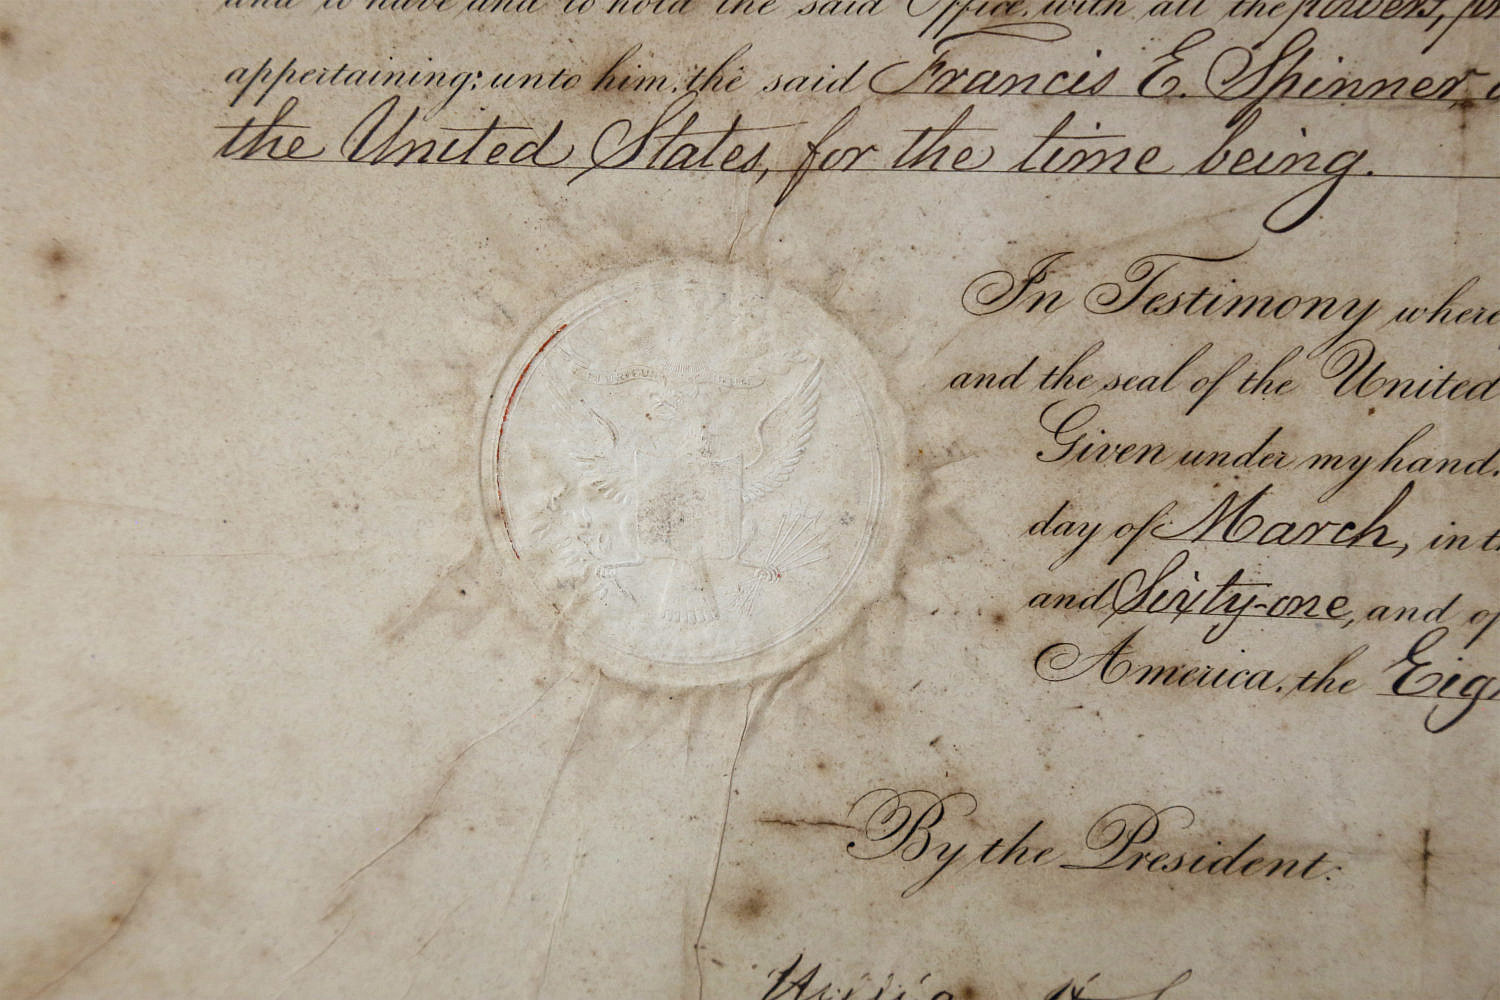 and to have and to hold the said Office, with all the powers,
appertaining: unto him, the said Francis E. Spinner,
the United States, for the time being.
In Testimony
and the seal of the United
Given under my hand,
day of March, in
and Sixty-one, and
America, the
By the President: